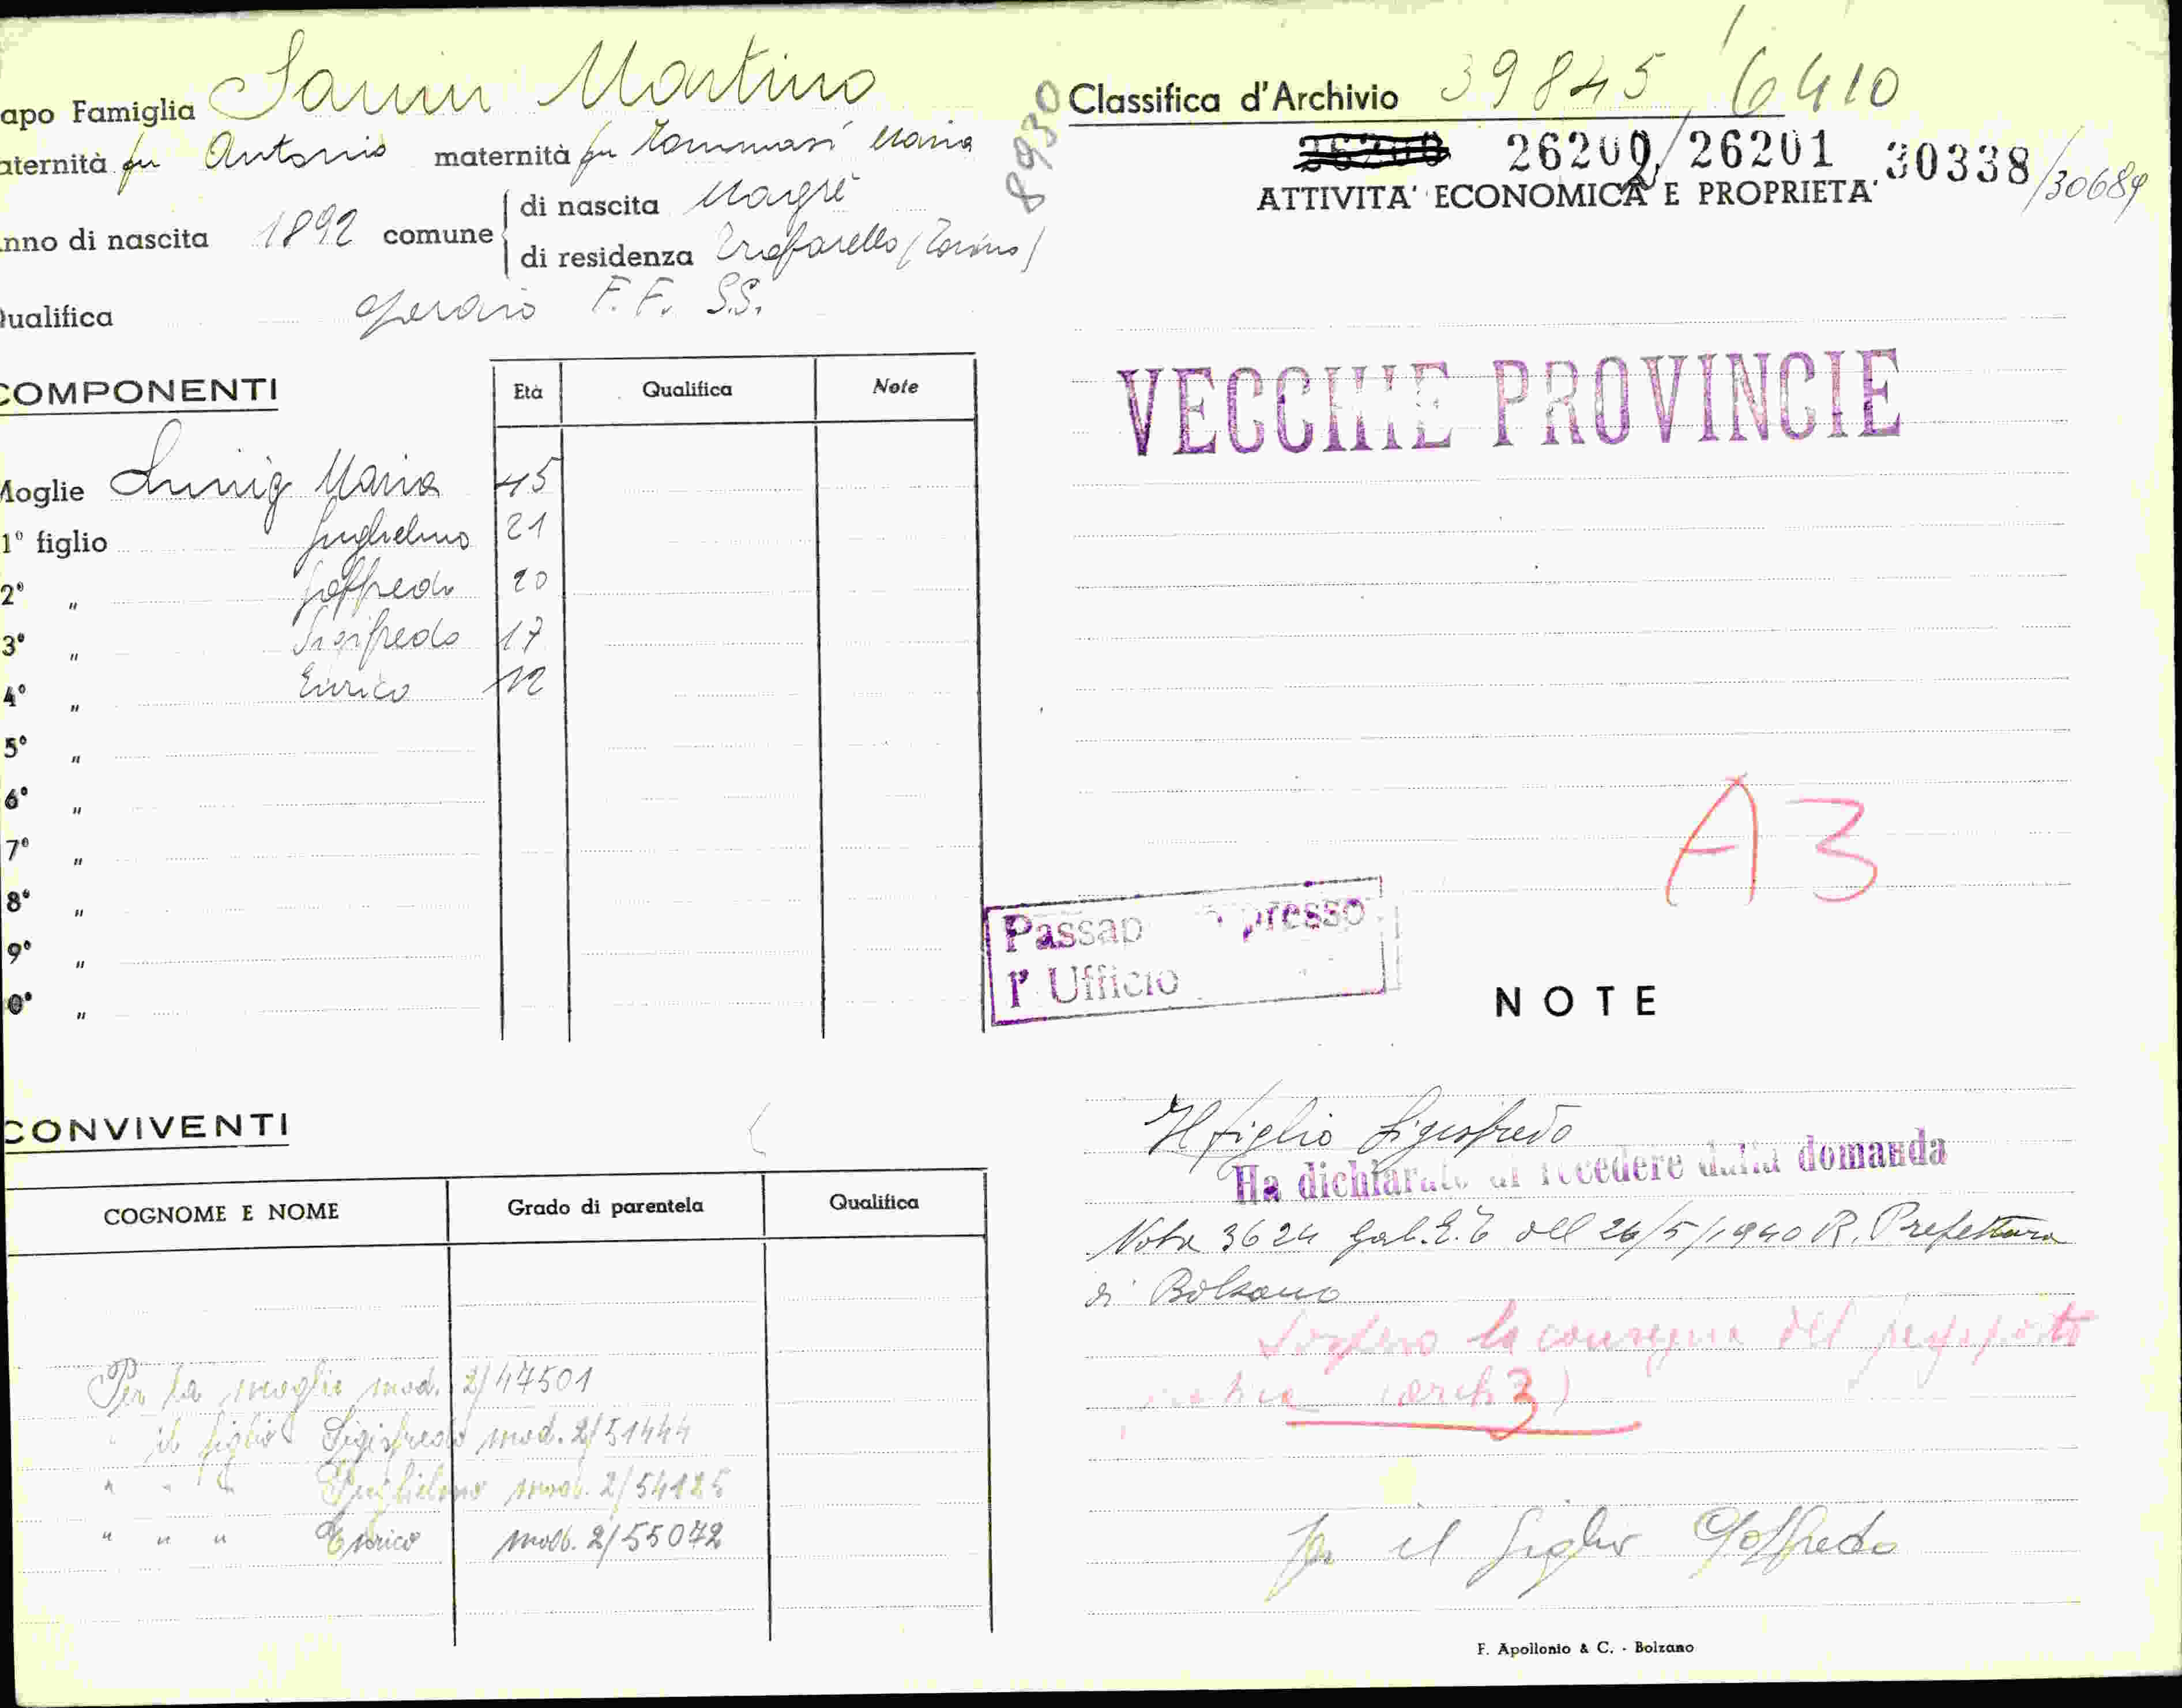 apo Famiglia Sanin Martino
aternità fu Antonio maternità fu Tommasi Maria
nno di nascita 1892 comune di nascita Magrè
di residenza Trofarello (Torino)
ualifica operaio F. F. S.S.
8930
Classifica d'Archivio 39845 / 6410
26200 26200/26201 30338/30689
ATTIVITA' ECONOMICA E PROPRIETA'
VECCHIE PROVINCIE
COMPONENTI Età Qualifica Note
Moglie Maria 45
1° figlio Guglielmo 21
2° " Goffredo 20
3° " Sigifredo 17
4° " Enrico 12
5° "
6° "
7° "
8° "
9° "
0° "
A3
Passap presso
l' Ufficio
NOTE
Il figlio Sigisfredo
Ha dichiarato di recedere dalla domanda
Nota 3624 Gab. E. T dell 26/5/1940 R. Prefettura
di Bolzano
la consegna del
3)
per il figlio Goffredo
CONVIVENTI
COGNOME E NOME Grado di parentela Qualifica
Per la moglie mod. 2/47501
" il figlio Sigisfredo mod. 2/51444
" " " Guglielmo mod. 2/54125
" " " Enrico mod. 2/55072
F. Apollonio & C. - Bolzano